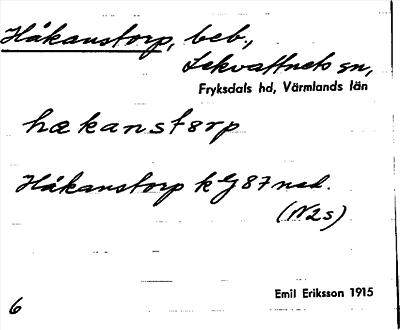 Håkanstorp, beb.,
Lekvattnets sn,
Fryksdals hd, Värmlands län
hækanstørp
Håkanstorp k eJ 87 ned.
(N2s)
Emil Eriksson 1915
6